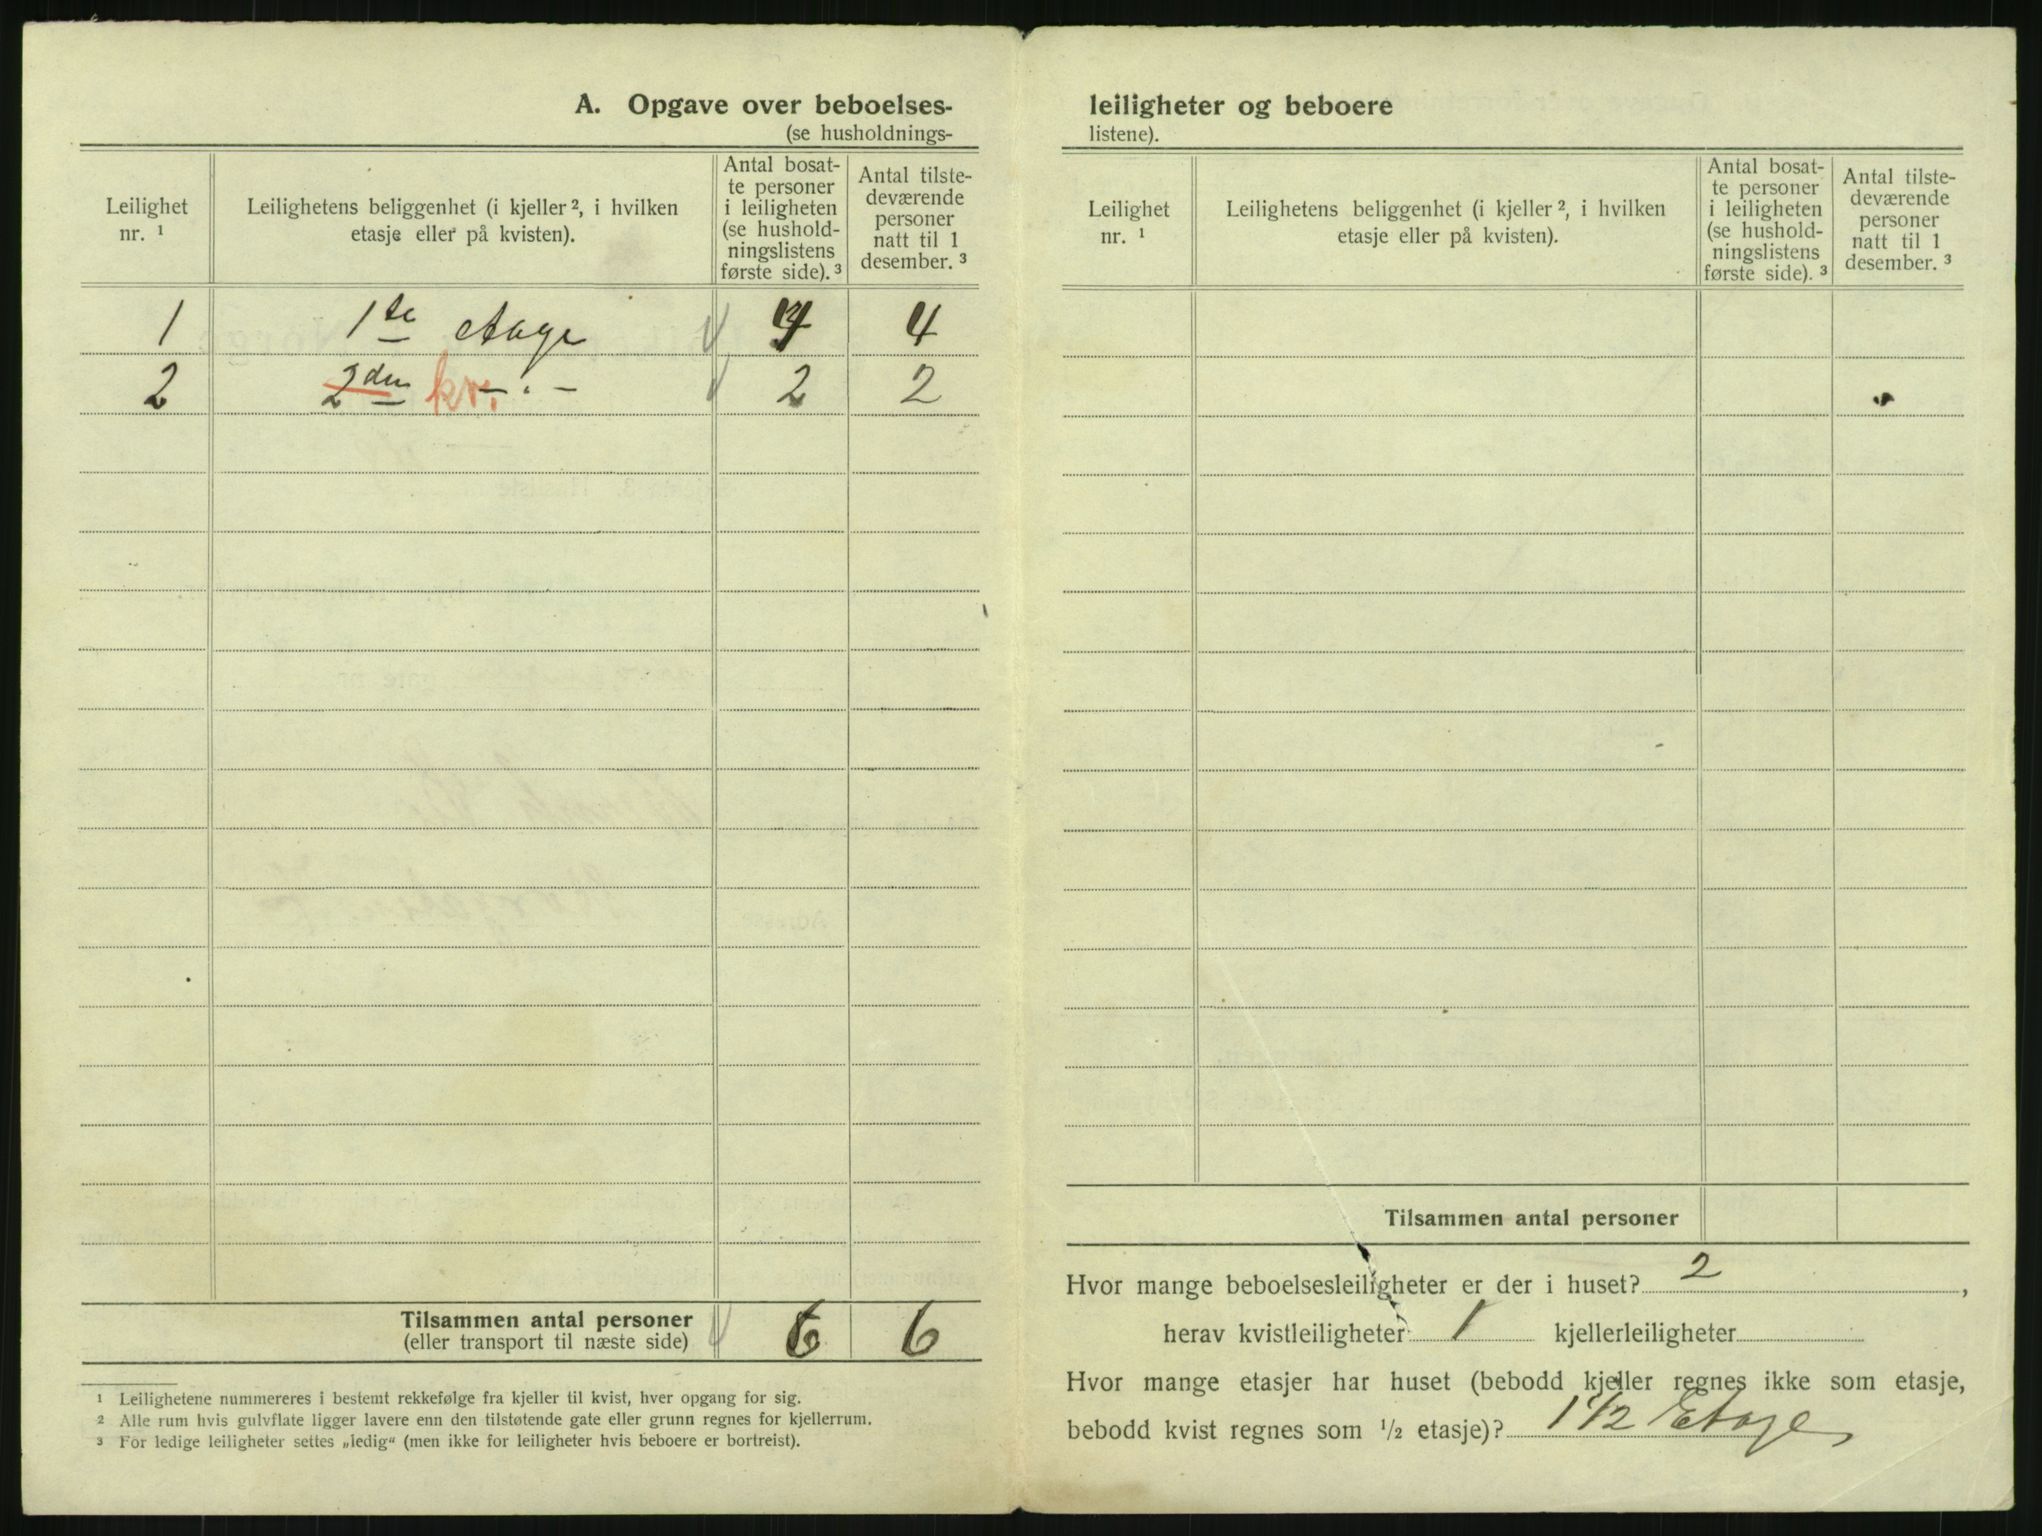 A. Opgave over beboelses-
(se husholdnings-
Leilighet nr. ¹
Leilighetens beliggenhet (i kjeller ², i hvilken etasje eller på kvisten).
Antal bosat-
te personer
i leiligheten
(se hushold-
ningslistens
første side). ³
Antal tilste-
deværende
personer
natt til 1
desember. ³
1 1ste etage 4 4
2 2den kv. - " - 2 2
Tilsammen antal personer 6 6
(eller transport til næste side)
¹ Leilighetene nummereres i bestemt rekkefølge fra kjeller til kvist, hver opgang for sig.
² Alle rum hvis gulvflate ligger lavere enn den tilstøtende gate eller grunn regnes for kjellerrum.
³ For ledige leiligheter settes „ledig“ (men ikke for leiligheter hvis beboere er bortreist).
leiligheter og beboere
listene).
Leilighet nr. ¹
Leilighetens beliggenhet (i kjeller ², i hvilken etasje eller på kvisten).
Antal bosat-
te personer
i leiligheten
(se hushold-
ningslistens
første side). ³
Antal tilste-
deværende
personer
natt til 1
desember. ³
Tilsammen antal personer
Hvor mange beboelsesleiligheter er der i huset? 2,
herav kvistleiligheter 1 kjellerleiligheter
Hvor mange etasjer har huset (bebodd kjeller regnes ikke som etasje,
bebodd kvist regnes som ½ etasje)? 1 1/2 Etage